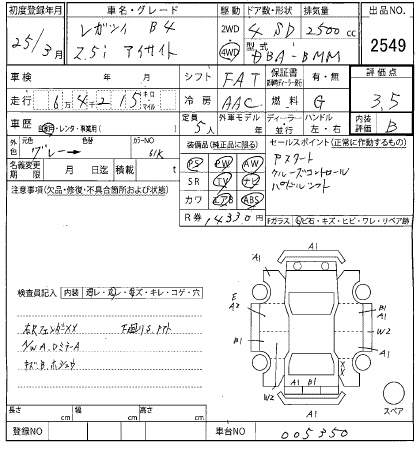 初度登録年月 車名・グレード 駆動 ドア数・形状 排気量 出品NO.
25/3月 レガシィ B4 2WD 4 SD 2500cc 2549
2.5i アイサイト 4WD 型式 DBA-BMM
車検 年 月 シフト FAT 保証書 有・無 評価点
走行 6万4千215 キロ マイル 冷房 AAC 燃料 G 3.5
車歴 自家用・レンタ・事業用( ) 定員 5人 外車モデル 年 ディーラー・並行 ハンドル 左・右 内装評価 B
外色 元色 グレー→ 色替 カラーNO 61K 装備品(純正品に限る) セールスポイント(正常に作動するもの)
名義変更期限 月 日迄 積載 t PS PW AW Pスタート
注意事項(欠品・修復・不具合箇所および状態) SR TV ナビ クルーズコントロール
カワ エアB ABS パドルシフト
R券 14330円 Fガラス 飛石・キズ・ヒビ・ワレ・リペア跡
A1
A1 A1
検査員記入 内装 汚レ・スレ・キズ・キレ・コゲ・穴
E
A2 B1
A1
右Rフェンダー XX 下廻りS W2
B1 A1
N/W A.DミラーA
キズ.B.ホジョウ XX
W2 A1 B1 A1
A1
スペア
長さ cm 幅 cm 高さ cm
登録NO 車台NO 005350